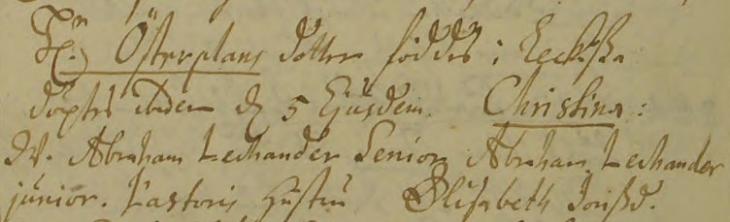 H. Österplans dotter föddes i Leckissa
döptes ibidem d 5 Ejusdem. Christina:
W. Abraham Lechander Senior, Abraham Lechander
junior. Pastoris Hustru Elisabeth Jonsd.